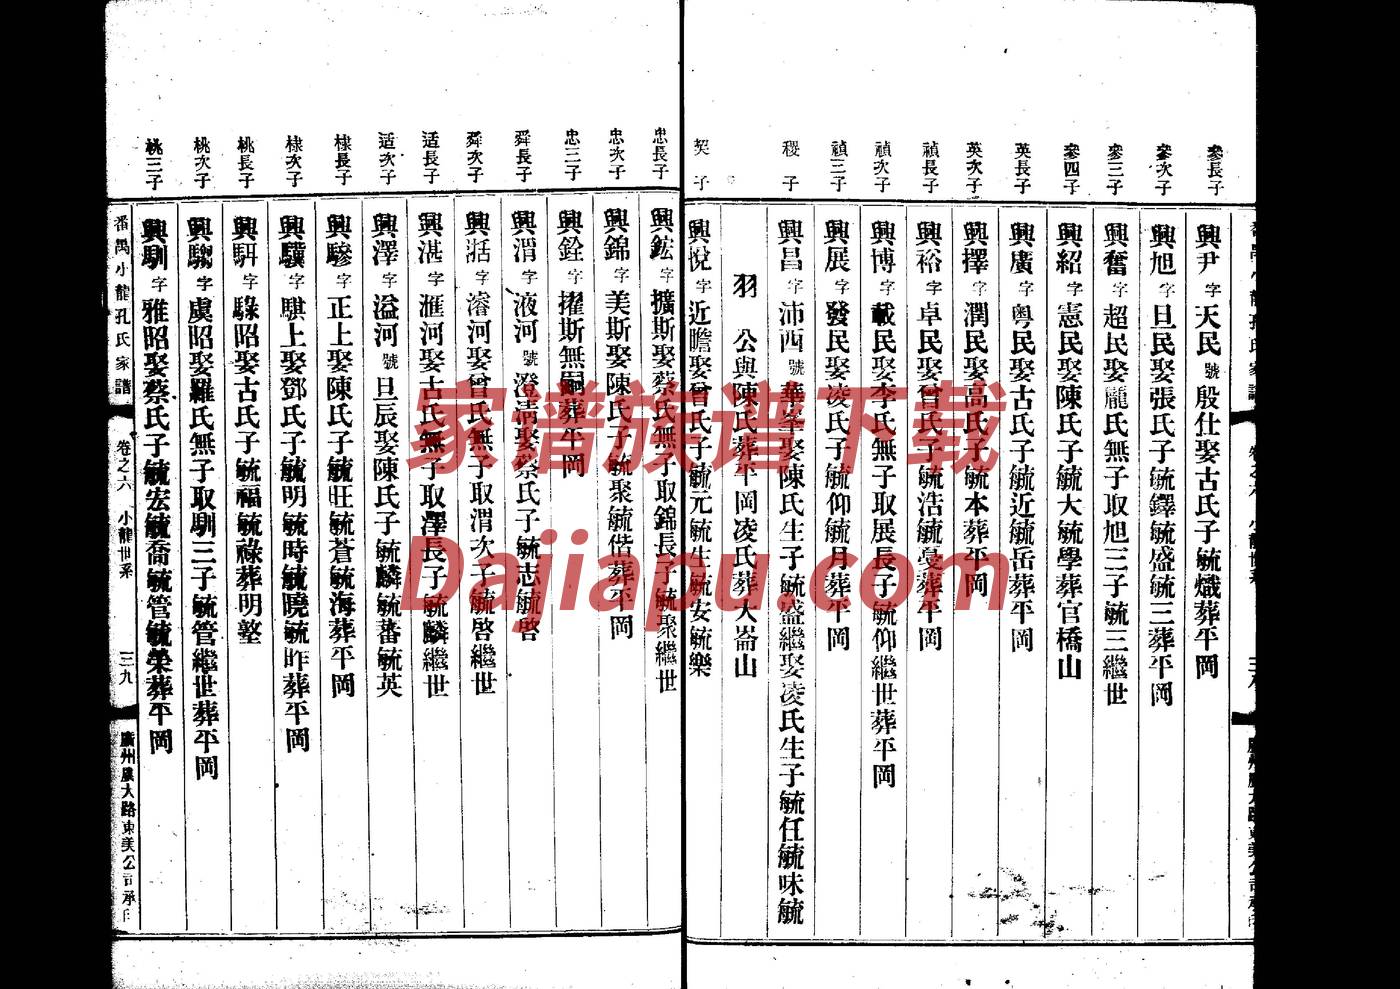 參長子
興尹字天民號殷仕娶古氏子毓熾葬平岡
參次子
興旭字旦民娶張氏子毓鐸毓盛毓三葬平岡
參三子
興奮字超民娶龐氏無子取旭三子毓三繼世
參四子
興紹字憲民娶陳氏子毓大毓學葬官橋山
英長子
興廣字粤民娶古氏子毓近毓岳葬平岡
英次子
興擇字潤民娶高氏子毓本葬平岡
禎長子
興裕字卓民娶曾氏子毓浩毓蔓葬平岡
禎次子
興博字載民娶李氏無子取展長子毓仰繼世葬平岡
禎三子
興展字發民娶凌氏子毓仰毓月葬平岡
稷子
興昌字沛四號華峯娶陳氏生子毓盛繼娶凌氏生子毓任毓味毓
羽 公與陳氏葬平岡凌氏葬大崙山
契子
興悅字近瞻娶曾氏子毓元毓生毓安毓樂
忠長子
興鉉字擴斯娶蔡氏無子取錦長子毓聚繼世
忠次子
興錦字美斯娶陳氏子毓聚毓偕葬平岡
忠三子
興銓字擢斯無嗣葬平岡
舜長子
興渭字液河號澄清娶蔡氏子毓志毓啓
舜次子
興湉字濬河娶曾氏無子取渭次子毓啓繼世
适長子
興湛字滙河娶古氏無子取澤長子毓麟繼世
适次子
興澤字溢河號旦辰娶陳氏子毓麟毓蕃毓英
棣長子
興驂字正上娶陳氏子毓旺毓蒼毓海葬平岡
棣次子
興驥字騏上娶鄧氏子毓明毓時毓曉毓昨葬平岡
桃長子
興駬字騄昭娶古氏子毓福毓祿葬明塾
桃次子
興騶字虞昭娶羅氏無子取馴三子毓管繼世葬平岡
桃三子
興馴字雅昭娶蔡氏子毓宏毓喬毓管毓榮葬平岡
番禺小龍孔氏家譜
卷之六 小龍世系
三九
廣州廣大路東美公司承印
家谱族谱下载
Dajiapu.com